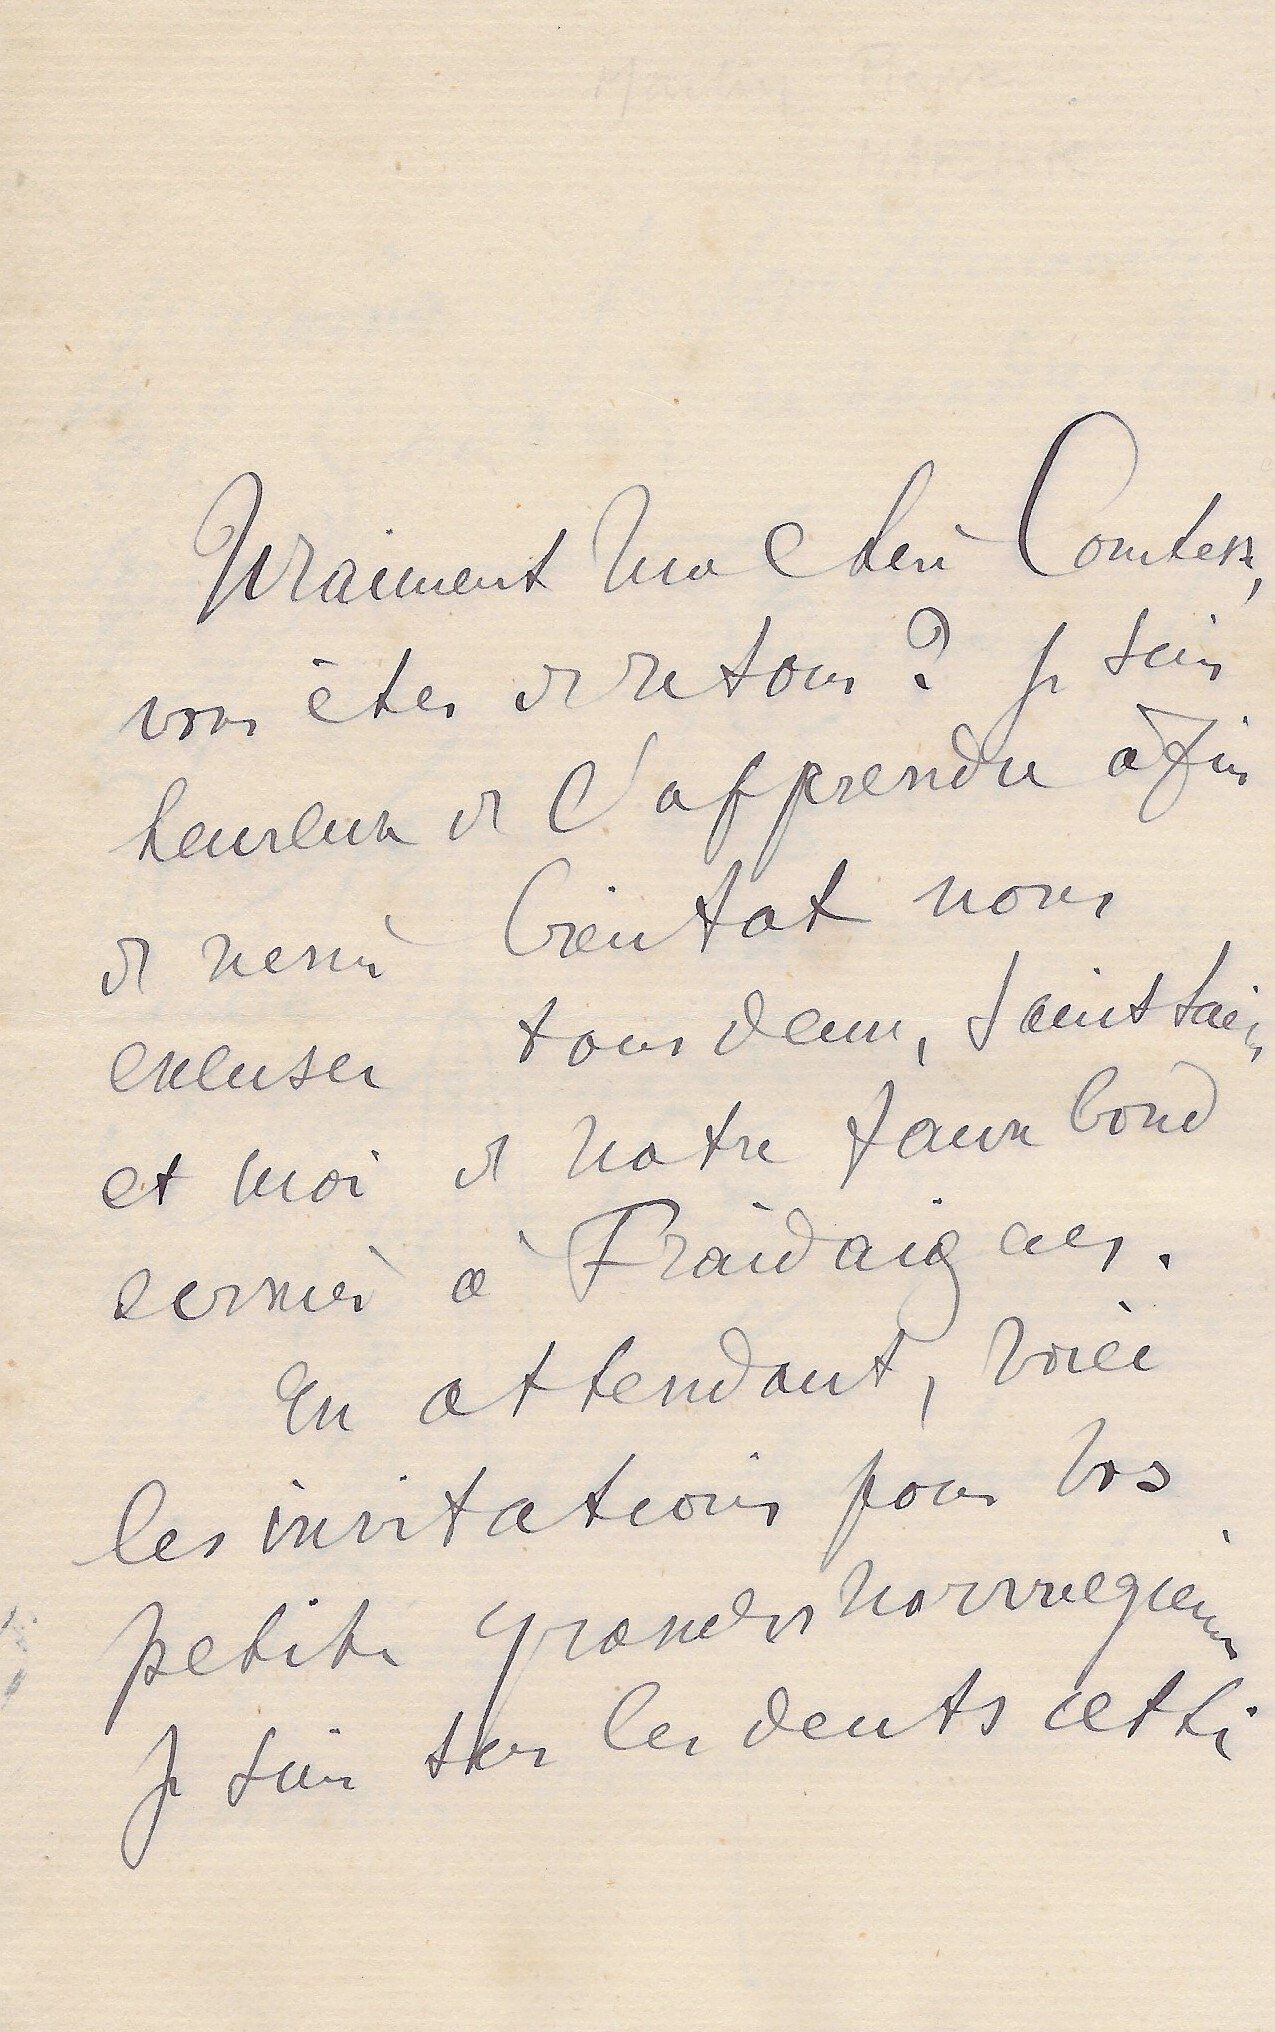 Vraiment ma chère Comtesse,
vous êtes de retour ? Je suis
heureux de l'apprendre afin
de venir bientot nous
excuser tous deux, Saint Saëns
et moi de notre faux bond
dernier à Fraidaigues.
En attendant, voici
les invitations pour vos
petites grandes norvegiennes
Je suis sur les dents cette